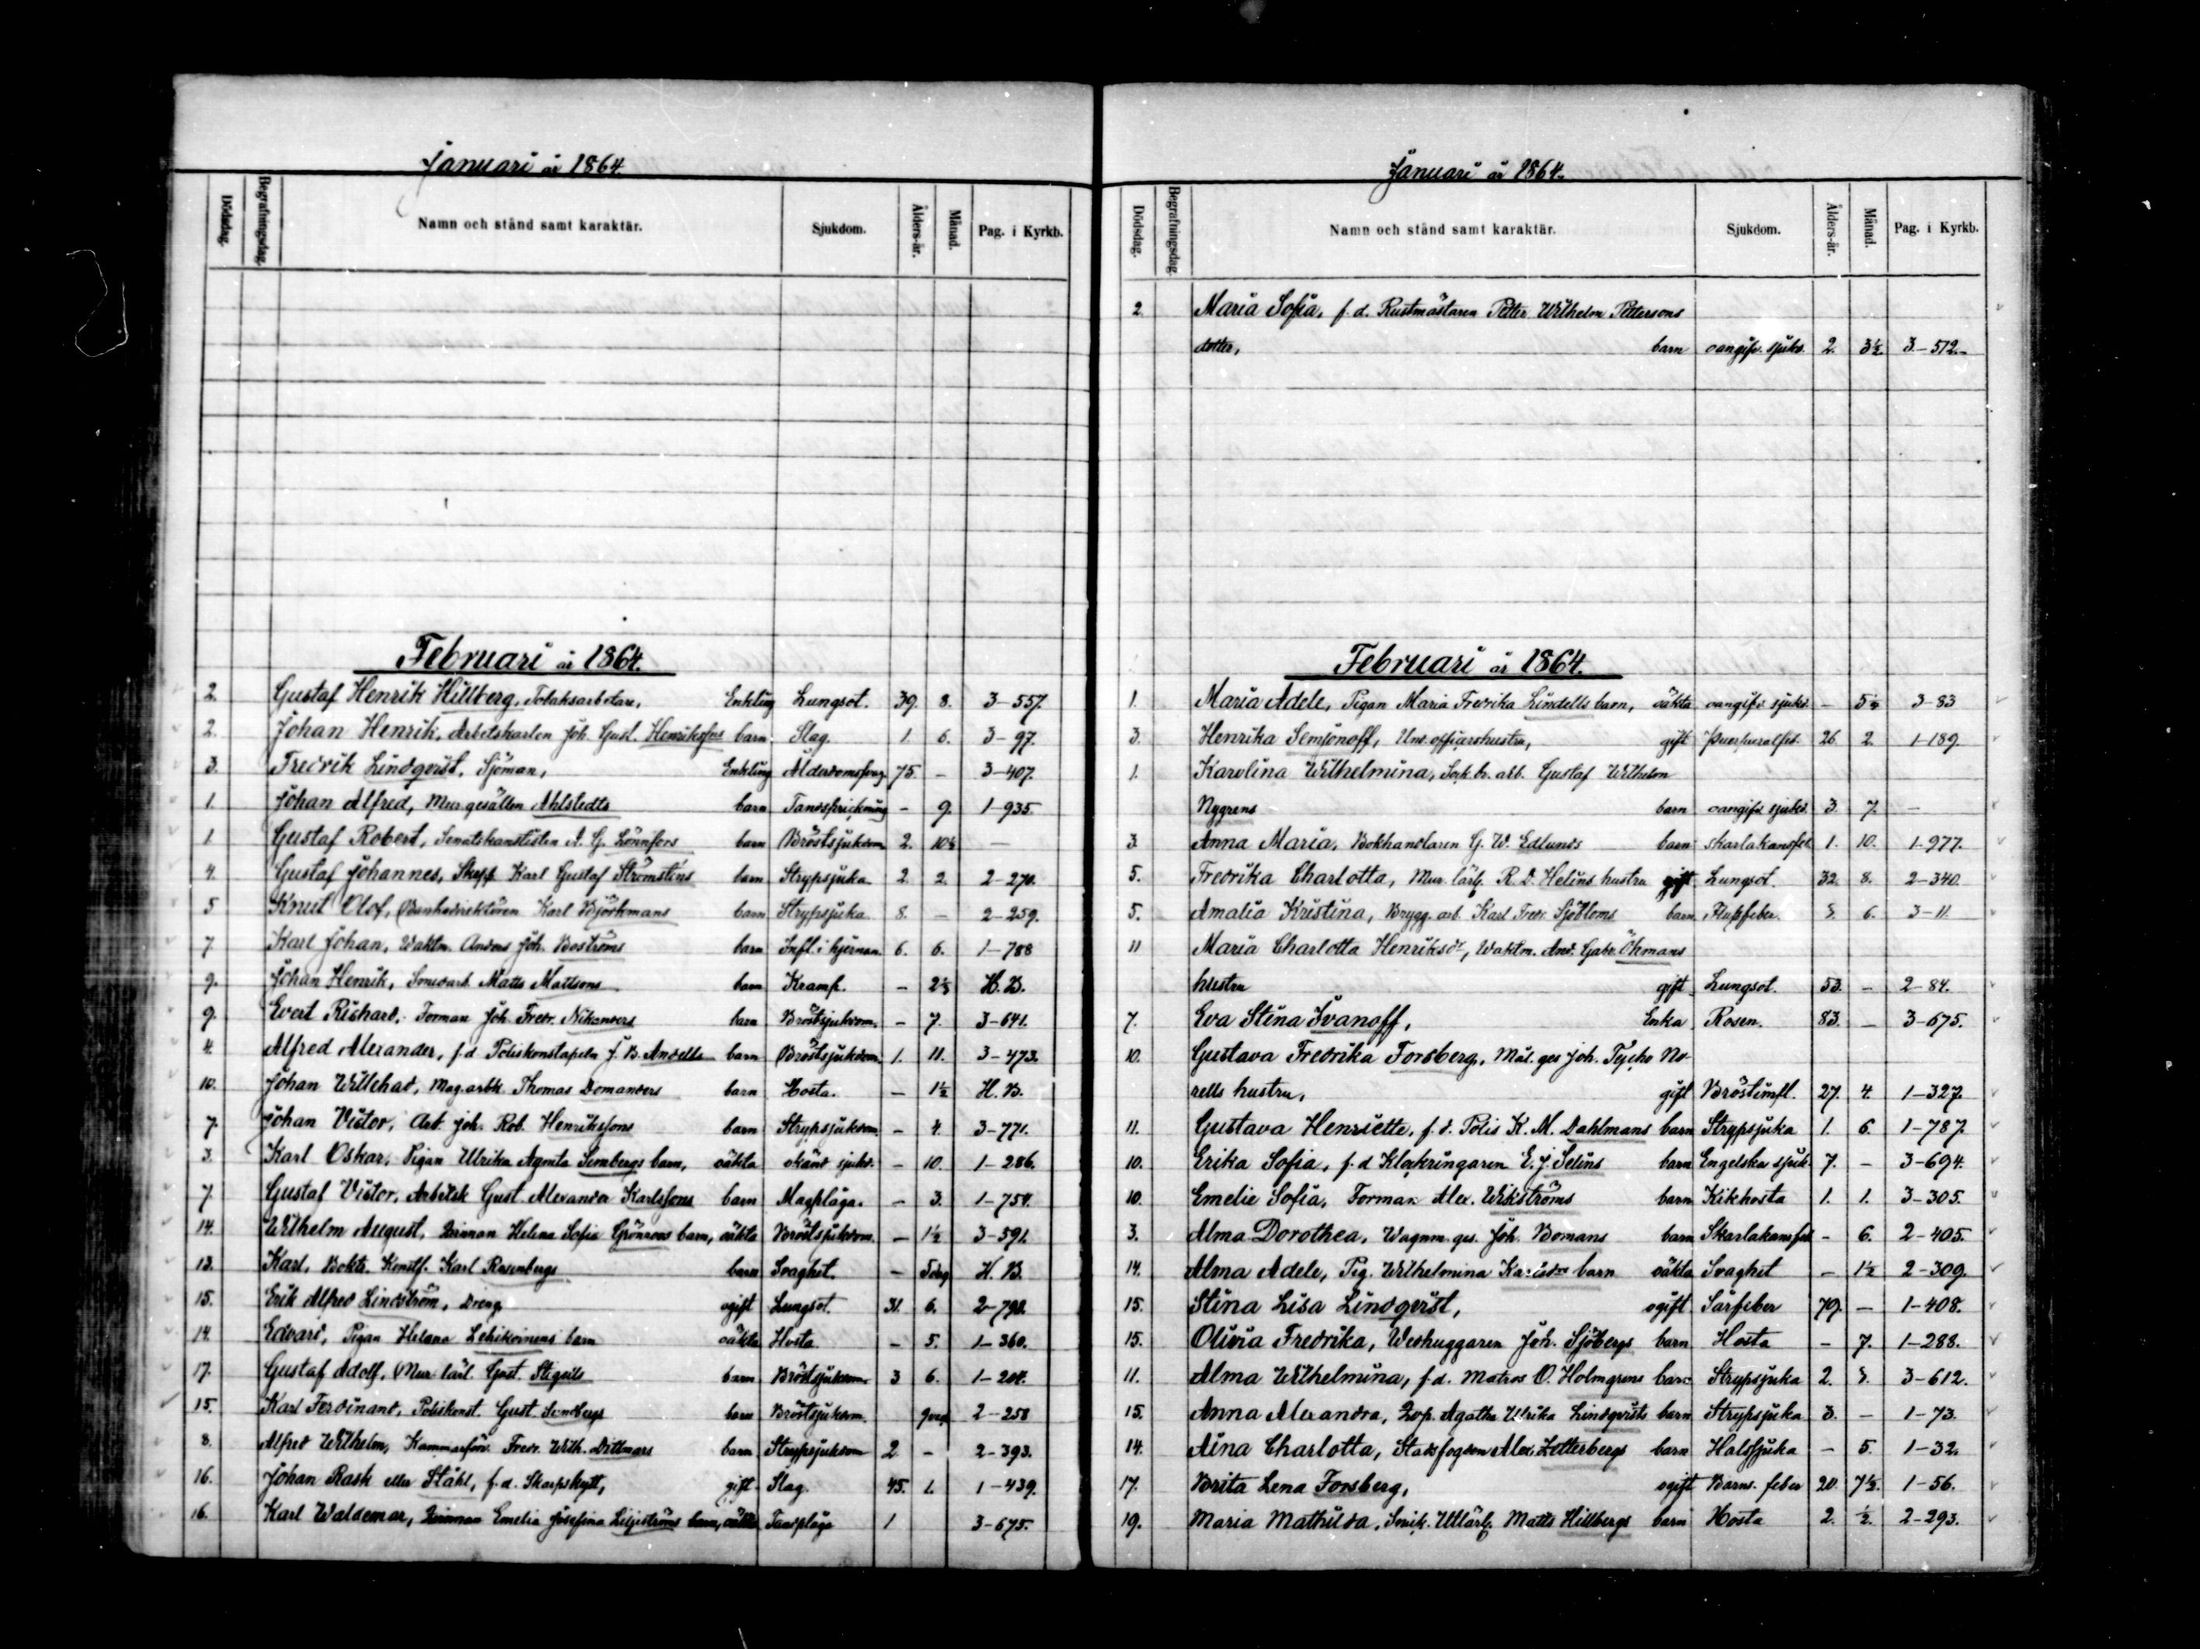 Januari år 1864.
Dödsdag. Begrafningsdag. Namn och stånd samt karaktär. Sjukdom. Ålders-år. Månad. Pag. i Kyrkb.
Februari år 1864.
2. Gustaf Henrik Hillberg, Tobaksarbetare, Enkling Lungsot. 39. 8. 3-557.
2. Johan Henrik, Arbetskarlen Joh. Gust. Henriksfons barn Slag. 1. 6. 3-97.
3. Fredrik Lindqvist, Sjöman, Enkling 75. - 3-407.
1. Johan Alfred, Mur gesällen Ahlstedts barn Tandsprickning - 9. 1-935.
1. Gustaf Robert, Senatskanslisten A. G. Lönnfors barn Bröstsjukdom 2. 10½ -
4. Gustaf Johannes, Skepp. Karl Gustaf Strömsténs barn Strypsjuka 2. 2. 2-270.
5 Knut Olof, Bankodirektören Karl Björkmans barn Strypsjuka 8. - 2-259.
7. Karl Johan, Waktm. Anders Joh. Boströms barn Infl. i hjernan 6. 6. 1-788
9. Johan Henrik, Smedarb. Matts Mattsons barn Kramp. - H. B.
9. Evert Rikhard, Forman Joh. Fredr. Nikanders barn Bröstsjukdom. - 7. 3-641.
4. Alfred Alexander, f.d. Poliskonstapeln J. B. Andells barn Bröstsjukdom 1. 11. 3-473.
10. Johan Willehad, Mag.arbk. Thomas Domanders barn Hosta. - 1½ H. B.
7. Johan Victor, Arb. Joh. Rob. Henriksfons barn Strypsjukdom - 4. 3-771.
3. Karl Oskar, Pigan Ulrika Agneta Sembergs barn, oäkta okänd sjukd. - 10. 1-286.
7. Gustaf Victor, Arbetsk Gust. Alexander Karlsfons barn Magplåga. - 3. 1-754.
14. Wilhelm August, Qvinnan Helena Sofia Grönroos barn, oäkta Bröstsjukdom. - 1½ 3-591.
13. Karl, Boktr. Konstf. Karl Rosenbergs barn Svaghet. - 5 dag H. B.
15. Erik Alfred Lindström, Dreng ogift Lungsot. 31. 6. 2-798.
14. Edvard, Pigan Helena Lehikoinens barn oäkta Hosta. - 5. 1-360.
17. Gustaf Adolf, Mur. lärl. Gust. barn Bröstsjukdom 3 6. 1-204.
15. Karl Ferdinand, Poliskonst. Gust. Sundbergs barn Bröstsjukdom. 2-258
8. Alfred Wilhelm, Kammarförv. Fredr. Wilh. Dittmars barn Strypsjukdom 2 - 2-393.
16. Johan Rask eller Ståhl, f.d. Skarpskytt, gift Slag. 45. 1. 1-439.
16. Karl Waldemar, Qvinnan Emelia Josefina Liljeströms barn, oäkta Tandplåga 1 3-675.
Januari år 1864.
Dödsdag. Begrafningsdag. Namn och stånd samt karaktär. Sjukdom. Ålders-år. Månad. Pag. i Kyrkb.
2. Maria Sofia, f.d. Rustmästaren Petter Wilhelm Pettersons
dotter, barn oangifv. sjukd. 2. 3½. 3-572.
Februari år 1864.
1. Maria Adele, Pigan Maria Fredrika Lindells barn, oäkta oangifv. sjukd. - 5½ 3-83
3. Henrika Semjonoff, Und.officershustru, gift Puerperalfeb. 26 2. 1-189.
1. Karolina Wilhelmina, Sock.br. arb. Gustaf Wilhelm
Nygrens barn oangifv. sjukd. 3. 7. -
3. Anna Maria, Bokhandlaren G. W. Edlunds barn skarlakansfeb. 1. 10. 1-977.
5. Fredrika Charlotta, Mur. lärl. R. D. Helins hustru gift Lungsot. 32. 8. 2-340.
5. Amalia Kristina, Brygg. arb. Karl Fredr. Sjöbloms barn 6. 3-11.
11 Maria Charlotta Henriksdr, Waktm. And. Gabr. Öhmans
hustru gift Lungsot. 53. - 2-84.
7. Eva Stina Ivanoff, Enka Rosen. 83. - 3-675.
10. Gustava Fredrika Forsberg, Mål. ges Joh. Tycho No-
rells hustru, gift Bröstinfl. 27. 4. 1-327.
11. Gustava Henriette, f.d. Polis K. M. Dahlmans barn Strypsjuka 1. 6. 1-787.
10. Erika Sofia, f.d. Klockringaren E. J. Selins barn Engelska sjuk. 7. - 3-694.
10. Emelie Sofia, Forman Alex. Wikströms barn Kikhosta 1. 1. 3-305.
3. Alma Dorothea, Wagnm. ges. Joh. Bomans barn Skarlakansfeb - 6. 2-405.
14. Alma Adele, Pig. Wilhelmina Karlsdrs barn oäkta Svaghet - 1½ 2-309.
15. Stina Lisa Lindqvist, ogift Sårfeber 79. - 1-408.
15. Olivia Fredrika, Vedhuggaren Joh. Sjöbergs barn Hosta - 7. 1-288.
11. Alma Wilhelmina, f.d. Matros O. Holmgrens barn Strypsjuka 2. 3-612.
15. Anna Alexandra, Agatha Ulrika Lindqvists barn Strypsjuka 3. - 1-73.
14. Aina Charlotta, Stadsfogden Alex. Zetterbergs barn Halssjuka - 5. 1-32.
17. Brita Lena Forsberg, ogift Barns. feber 20. 7½. 1-56.
19. Maria Mathilda, Utlärl. Matts Hillbergs barn Hosta 2. ½. 2-293.